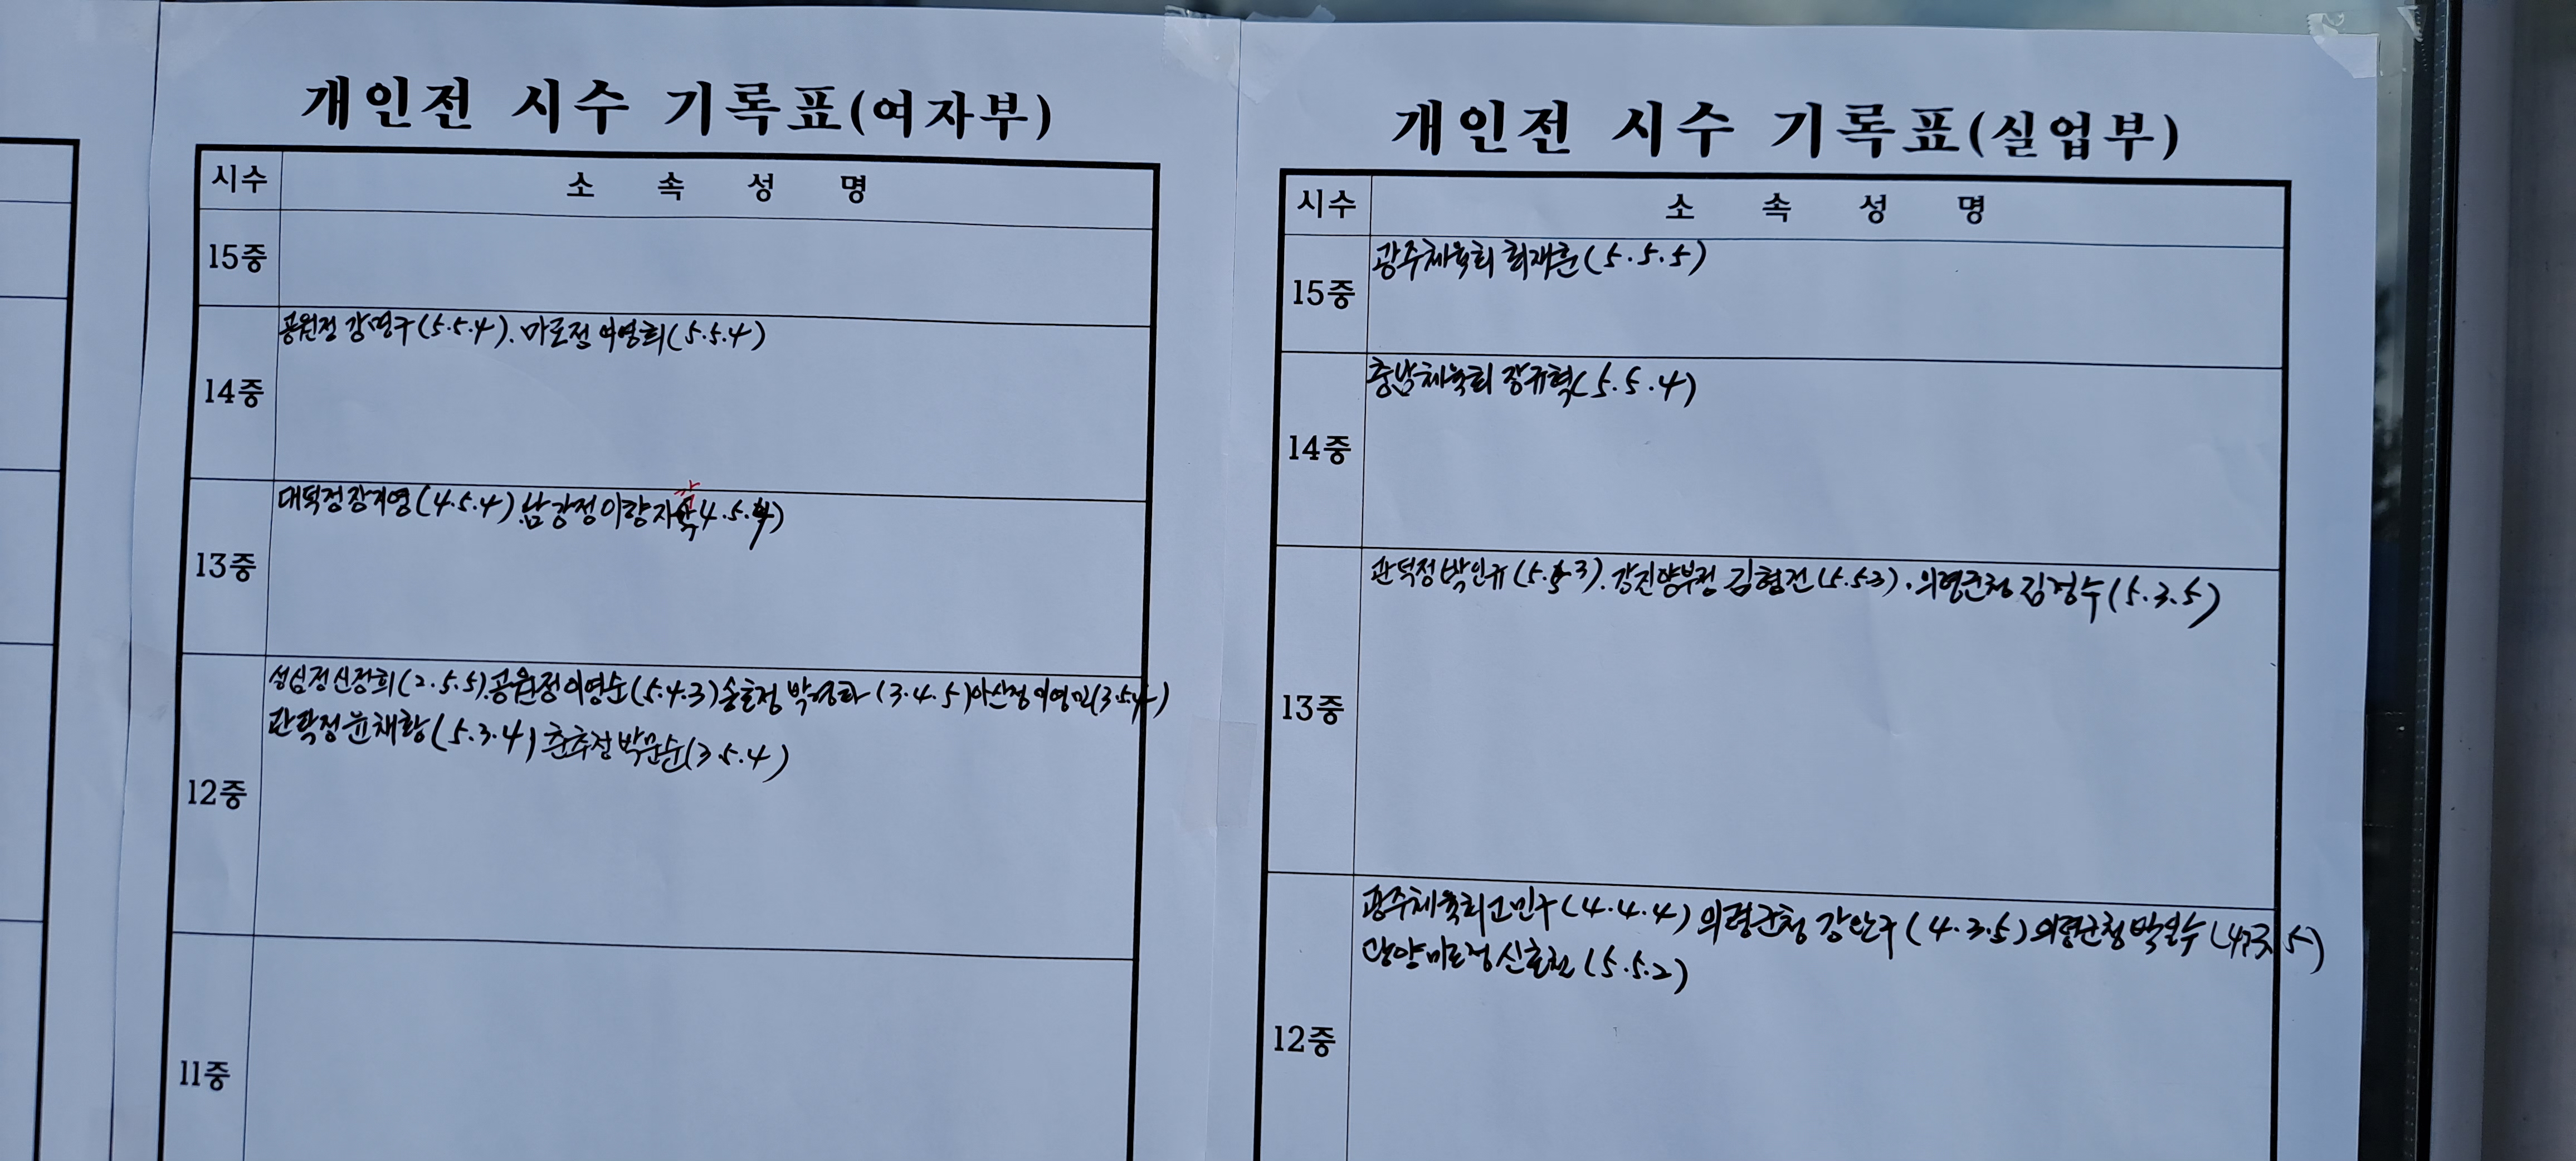 개인전 시수 기록표(여자부)
시수 소 속 성 명
15중
14중 공원정 강명구(5.5.4). 마로정 이영희(5.5.4)
13중 대덕정 장지영(4.5.4). 남강정 이향자(4.5.4)
12중 성심정 신정희(2.5.5). 공원정 이영순(5.4.3) 송호정 박영화(3.4.5) 아산정 이영민(3.5.4)
관악정 윤채황(5.3.4) 환추정 박문순(3.5.4)
11중
개인전 시수 기록표(실업부)
시수 소 속 성 명
15중 광주체육회 최재훈(5.5.5)
14중 충남체육회 장규혁(5.5.4)
13중 관덕정 박인규(5.5.3). 강진양무정 김형건(5.5.3). 의령군청 김정수(5.3.5)
12중 광주체육회 고민구(4.4.4) 의령군청 강인구(4.3.5) 의령군청 박일수(4.3.5)
(5.5.2)